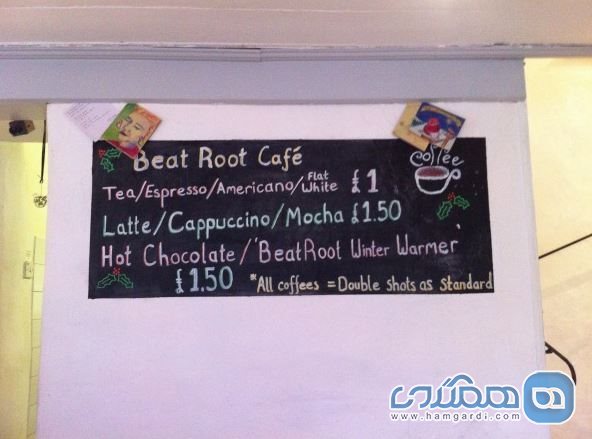 Beat Root Café
Coffee
Tea/Espresso/Americano/Flat White £1
Latte/Cappuccino/Mocha £1.50
Hot Chocolate/'BeatRoot Winter Warmer'
£1.50 *All coffees = Double shots as Standard
همگردی
www.hamgardi.com